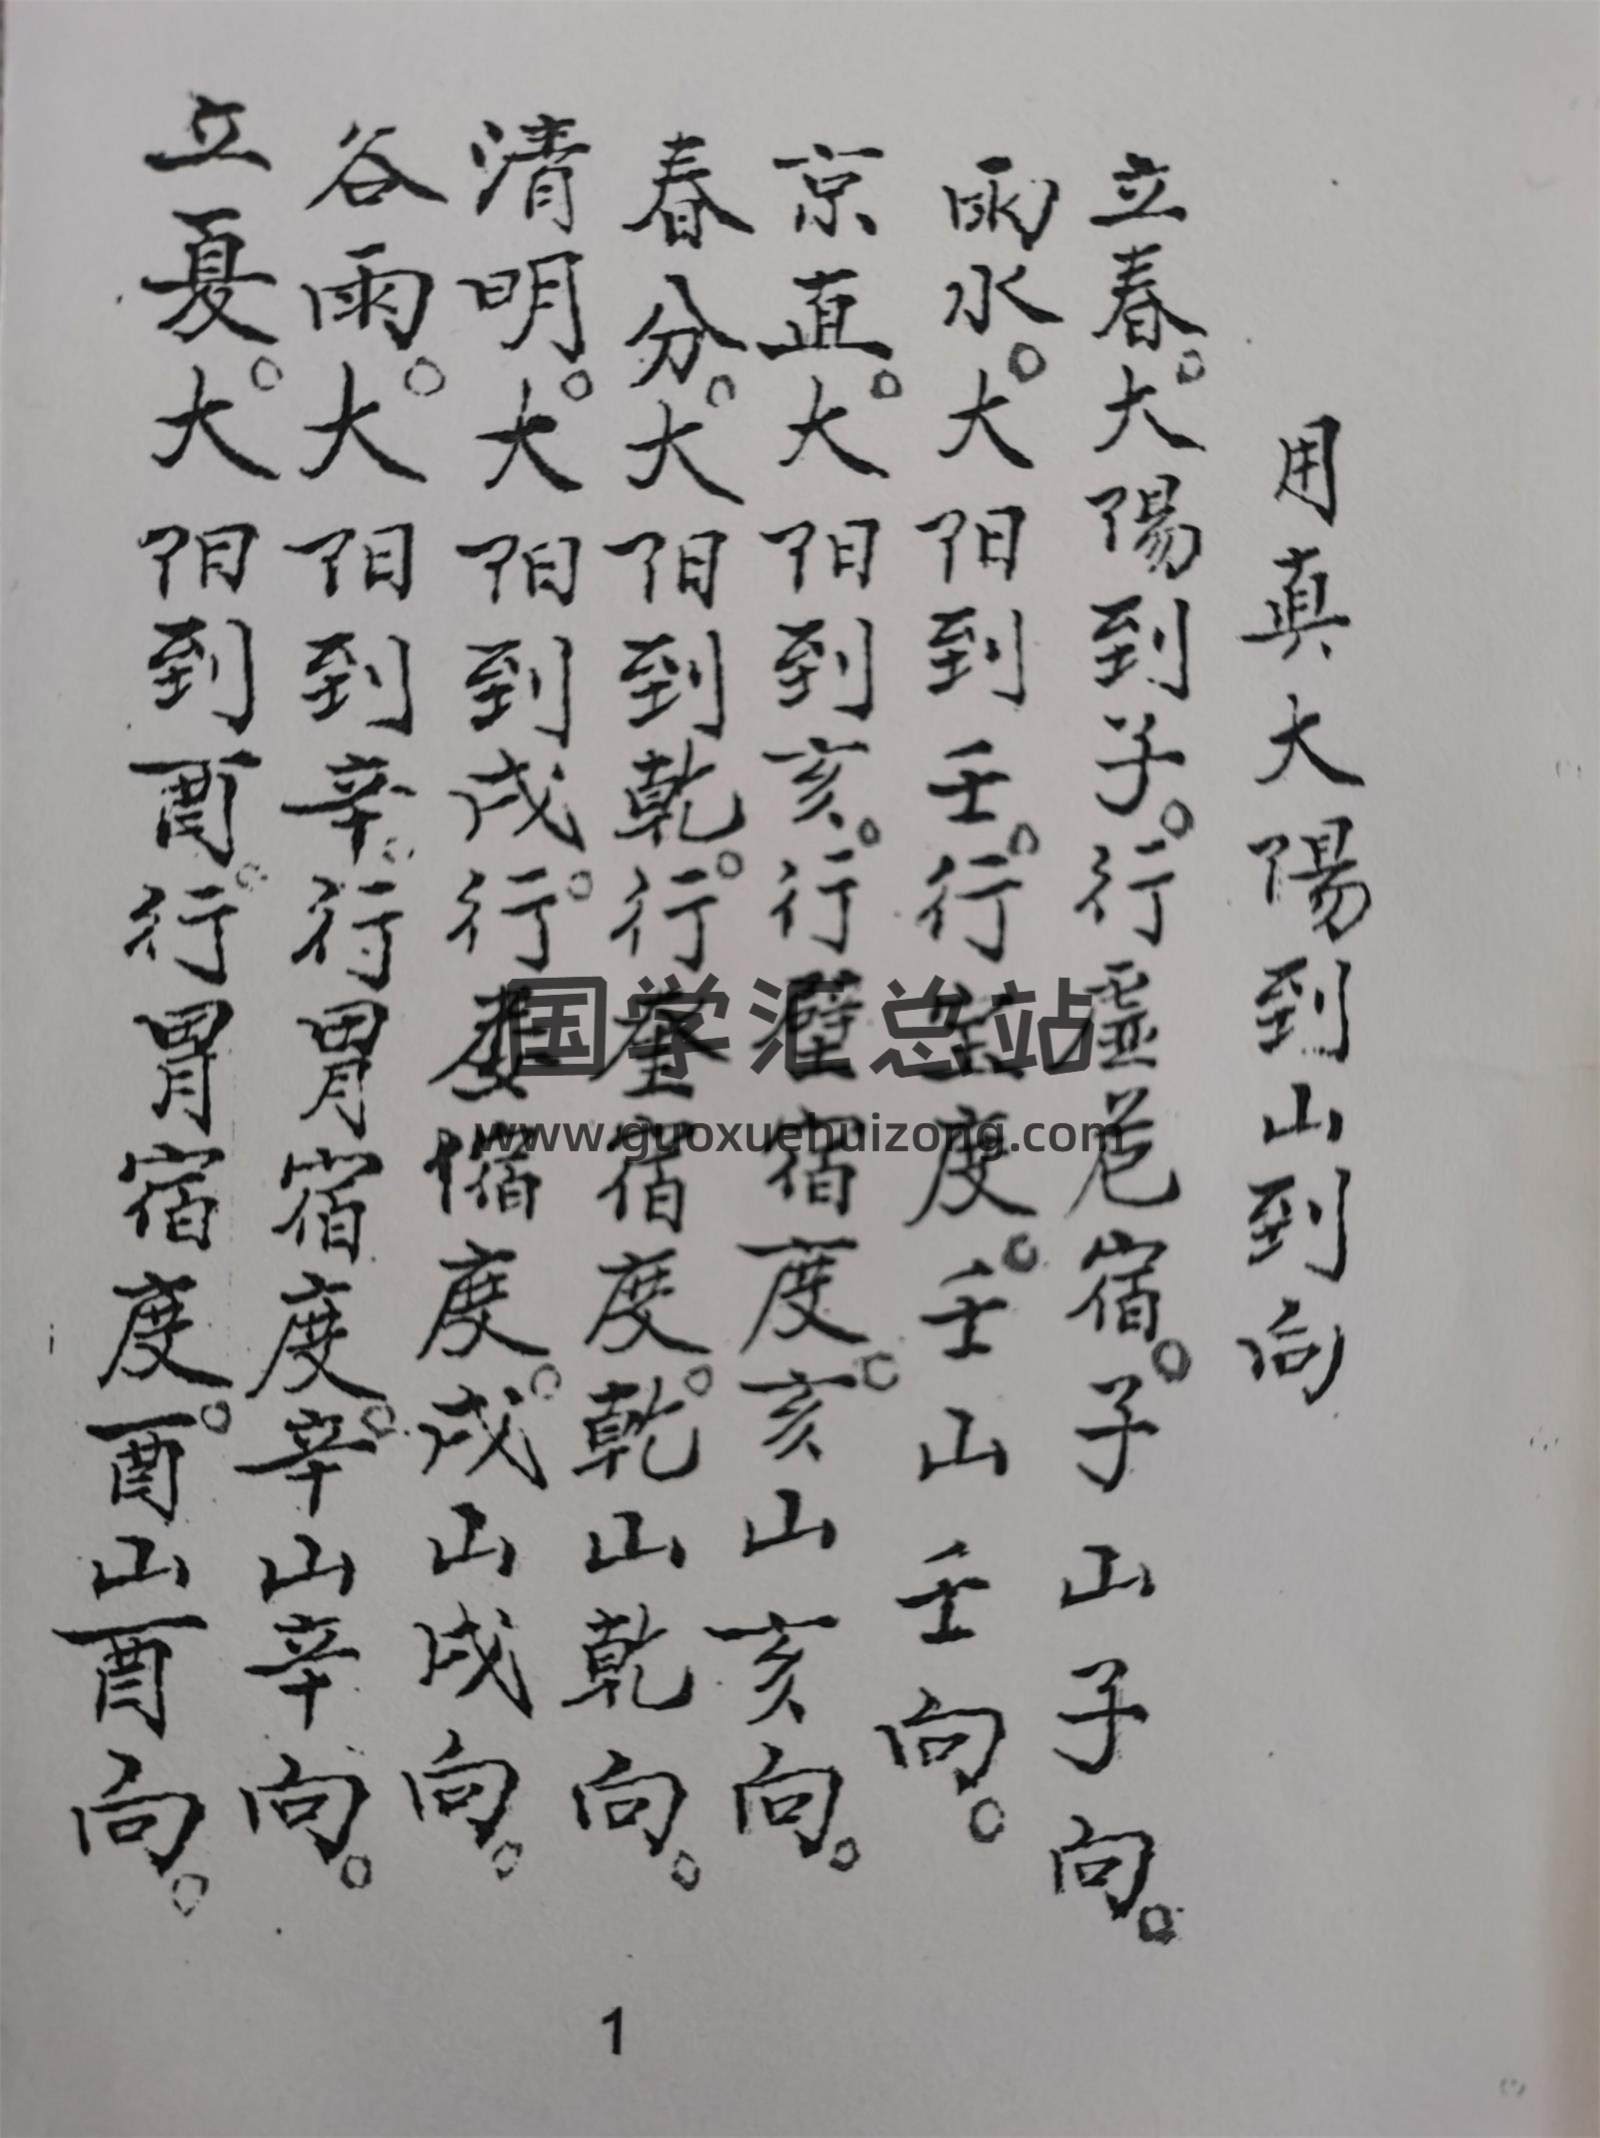 用真大陽到山到向
立春。大陽到子。行虚危宿。子山子向。
雨水。大阳到壬。行室度。壬山壬向。
京直。大阳到亥。行壁宿度。亥山亥向。
春分。大阳到乾。行奎宿度。乾山乾向。
清明。大阳到戌行。娄宿度。戌山戌向。
谷雨。大阳到辛。行胃宿度。辛山辛向。
立夏。大阳到酉。行胃宿度。酉山酉向。
国学汇总站
www.guoxuehuizong.com
1